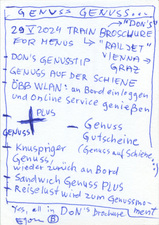 GENUSS GENUSS...
"DON'S"
29 V 2024 TRAIN BROSCHURE
FOR MENUS → "RAILJET"
VIENNA →
GRAZ
- DON'S GENUSSTIP
GENUSS AUF DER SCHIENE
ÖBB WLAN: an Bord einloggen
und Online service genießen
PLUS
GENUSS
- Genuss
Gutscheine
(Genuss auf Schiene)
- Knuspriger
Genuss,
wieder zurück an Bord
- Sandwich Genuss PLUS
- Reiselust wird zum Genussmo-
ment
Yes, all in DON'S Brochure